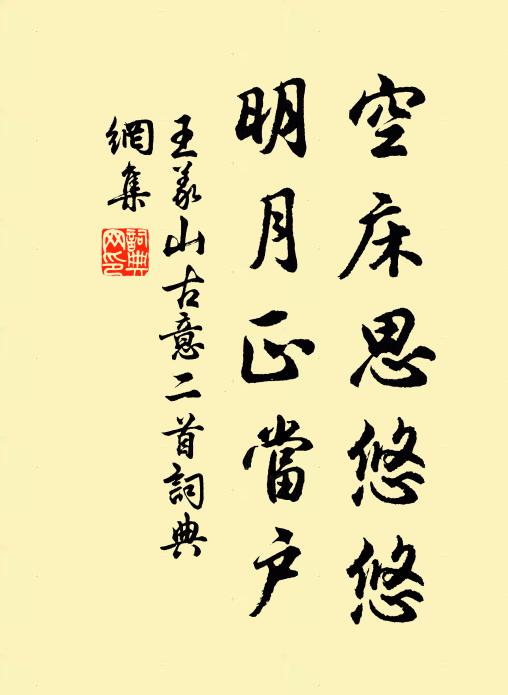 空床思悠悠
明月正當户
王義山古意二首詞典
網集
詞典
网印